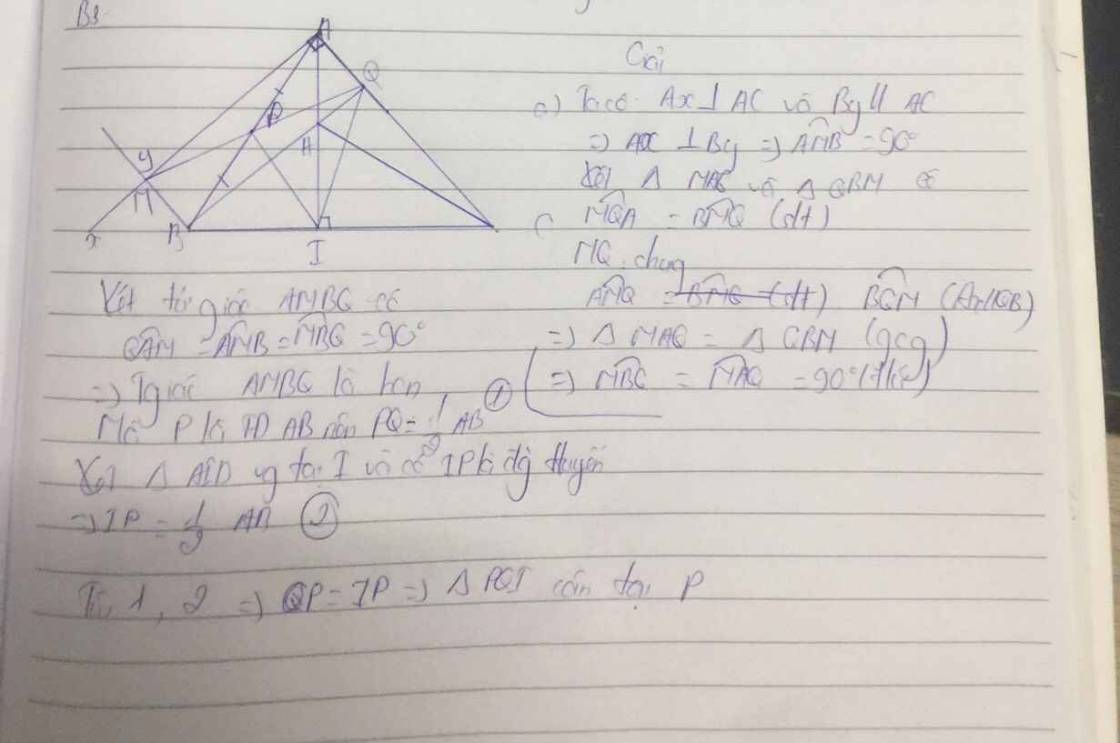 B3.
A
Q
P
H
y
M
x
B
I
C
Giải
a) Ta có Ax ⊥ AC và By // AC
=> Ax ⊥ By => AMB = 90°
Xét Δ MAQ và Δ QBM có
MQA = BMQ (slt)
MQ chung
AMQ = BMQ (slt) BQM (Ax//QB)
=> Δ MAQ = Δ QBM (gcg)
=> MBQ = MAQ = 90°
Xét tứ giác AMBQ có
QAM = AMB = MBQ = 90°
=> Tgiác AMBQ là hcn
Mà P là TĐ AB nên PQ = 1/2 AB ①
Xét Δ AIB vg tại I và có IP là đg
=> IP = 1/2 AB ②
Từ 1, 2 => QP = IP => Δ PQI cân tại P